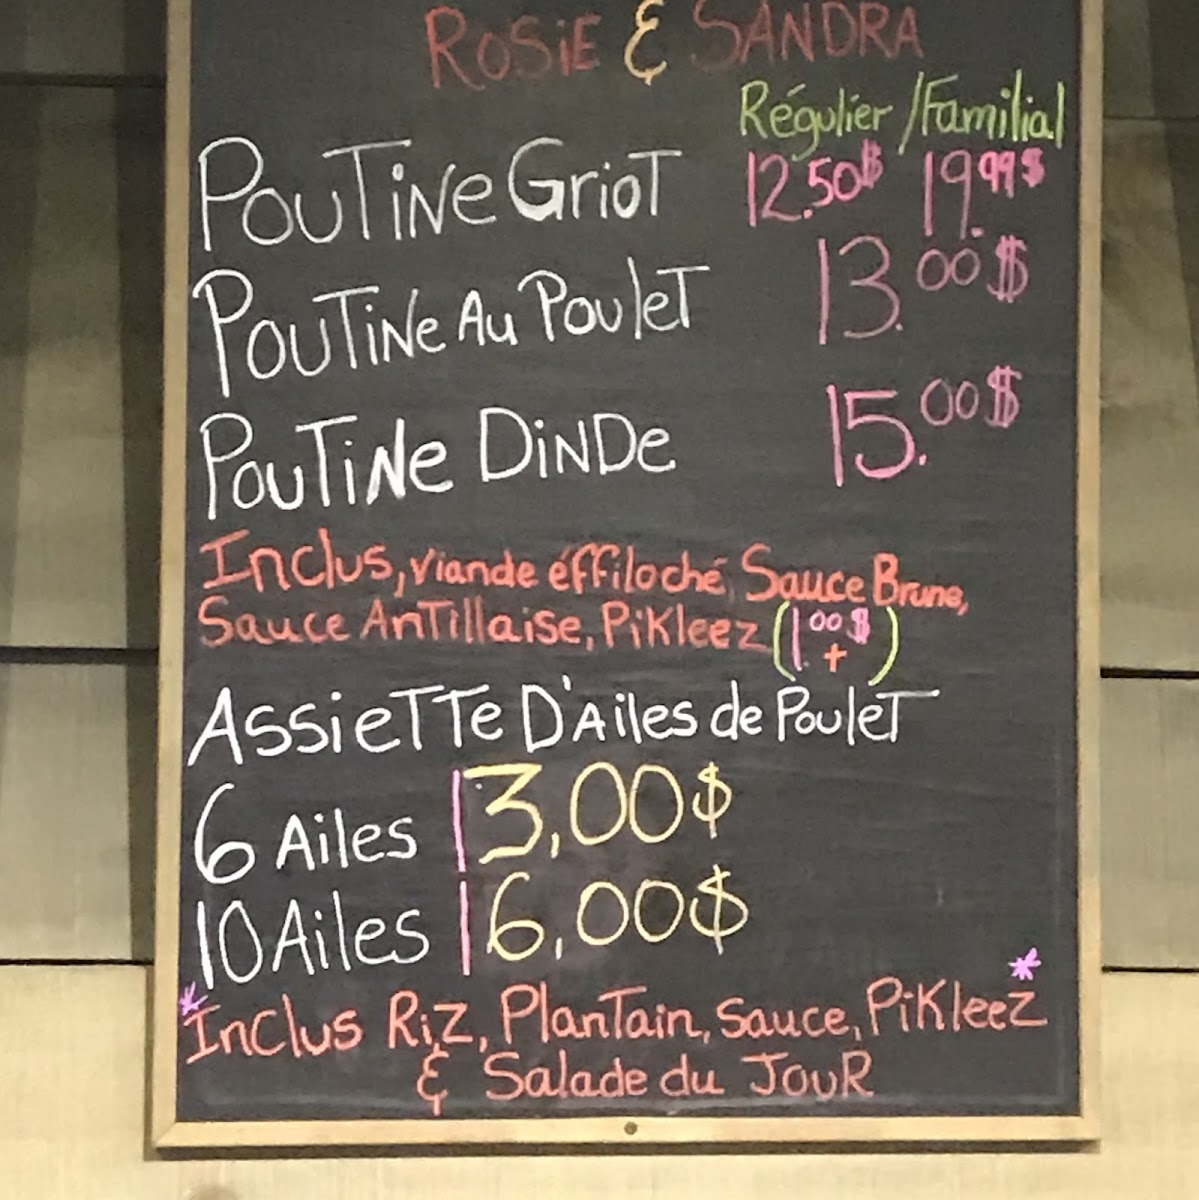 ROSIE & SANDRA
Régulier / Familial
POUTINE GRIOT 12.50$ 19.99$
POUTINE AU POULET 13.00$
POUTINE DINDE 15.00$
Inclus, viande éffiloché, Sauce Brune,
Sauce Antillaise, Pikleez (1.00$ +)
ASSIETTE D'AILES de POULET
6 AILES 13,00$
10 AILES 16,00$
*Inclus Riz, Plantain, sauce, Pikleez*
& Salade du JOUR